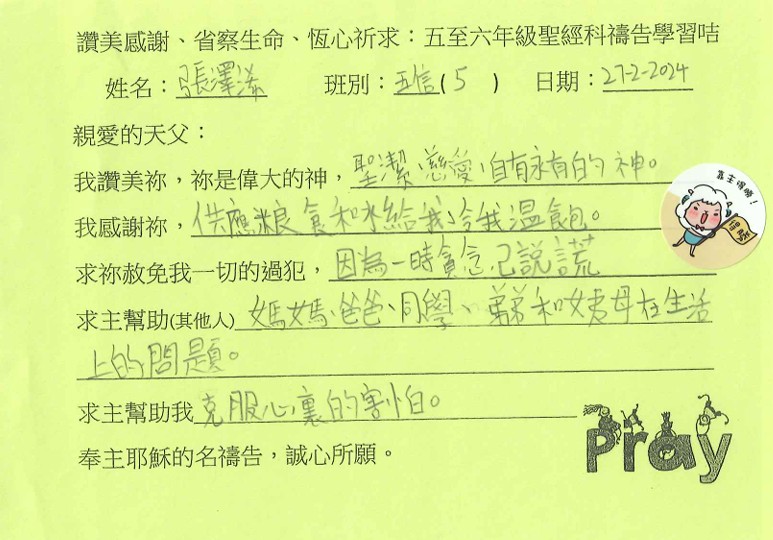 讚美感謝、省察生命、恆心祈求：五至六年級聖經科禱告學習咭
姓名：張澤浠 班別：五信(5) 日期：27-2-2024
親愛的天父：
我讚美祢，祢是偉大的神，聖潔、慈愛、自有永有的神。
我感謝祢，供應糧食和水給我，令我溫飽。
求祢赦免我一切的過犯，因為一時貪念而說謊
求主幫助(其他人) 媽媽、爸爸、同學、弟弟和姨母在生活
上的問題。
求主幫助我 克服心裏的害怕。
奉主耶穌的名禱告，誠心所願。
靠主得勝！
得勝
Pray